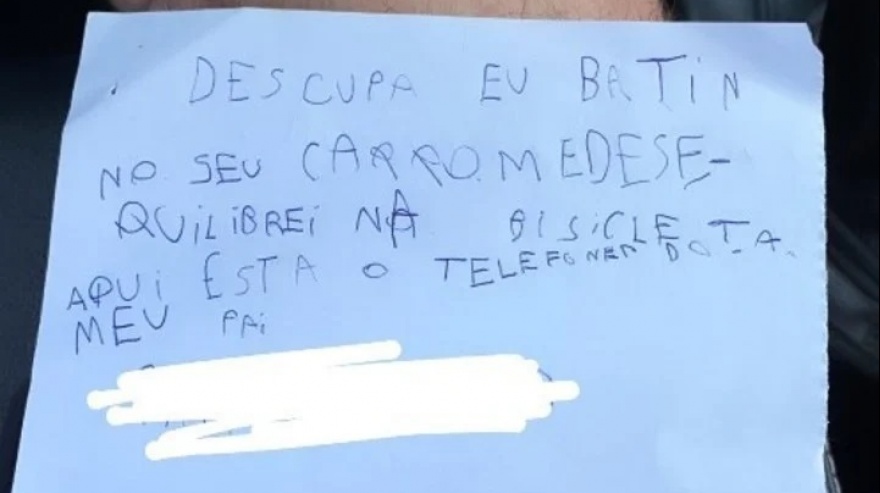 DESCUPA EU BATIN
NO SEU CARRO. MEDESE-
QUILIBREI NA BISICLETA.
AQUI ESTA O TELEFONEM DO
MEU PAI